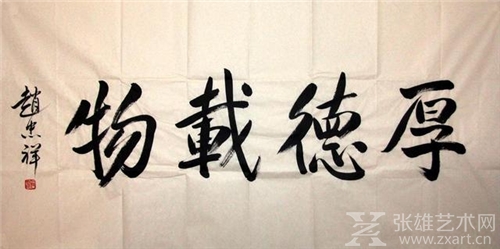 厚德載物
趙忠祥
张雄艺术网
www.zxart.cn